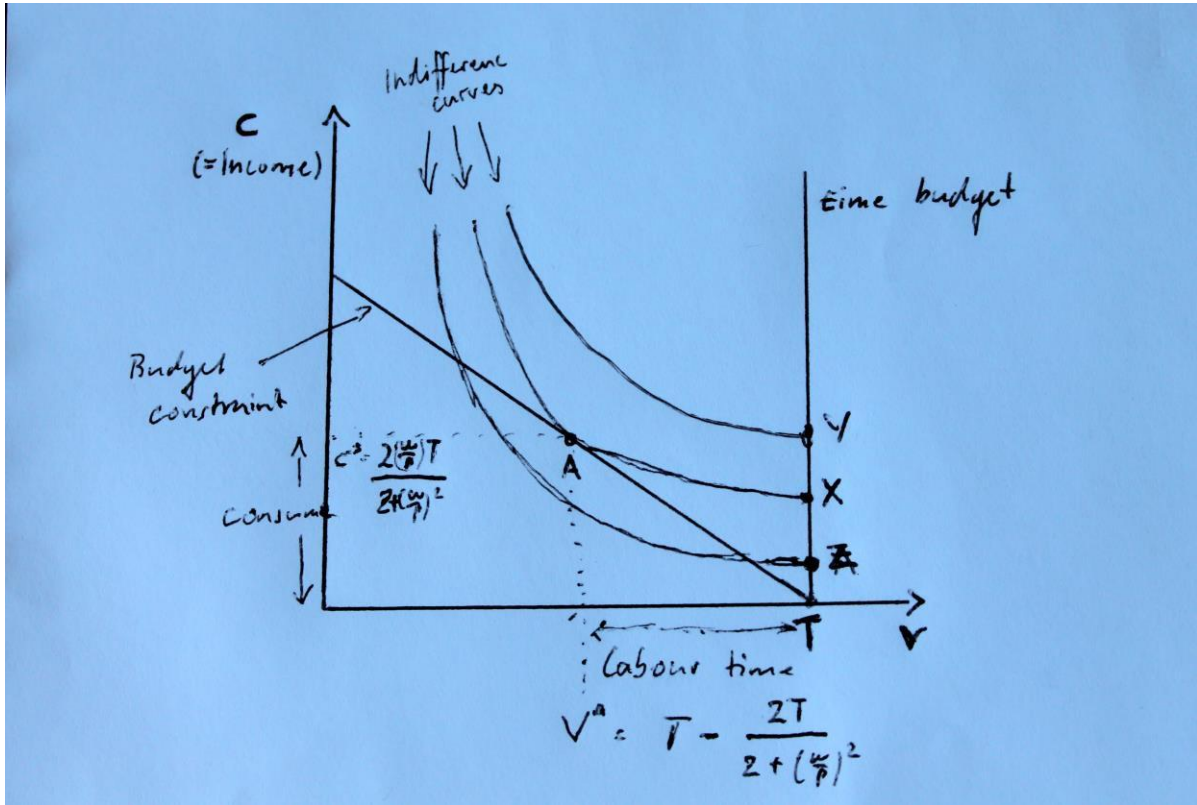 Indifference
curves
C
(=Income)
time budget
Budget
constraint
Y
X
A
c* = 2(w/p)T / 2+(w/p)²
Consum
T
V
Labour time
V* = T - 2T / 2 + (w/p)²